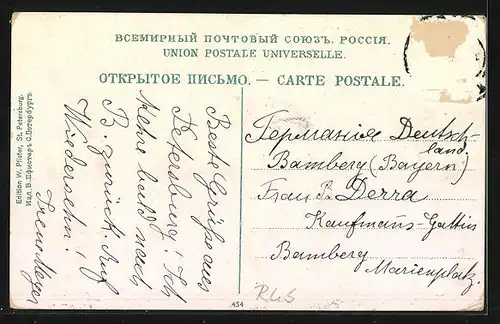 ВСЕМІРНЫЙ ПОЧТОВЫЙ СОЮЗЪ. РОССІЯ.
UNION POSTALE UNIVERSELLE.
ОТКРЫТОЕ ПИСЬМО. — CARTE POSTALE.
Edition W. Pfister, St. Petersburg.
Изд. В. Пфистеръ С. Петербургъ
Beste Grüße aus
Petersburg! Ich
kehre bald nach
B. zurück. Auf
Wiedersehn!
Германия Deutsch-
land.
Bamberg (Bayern)
Frau B. Derra
Kaufmanns-Gattin
Bamberg
Marienplatz.
454